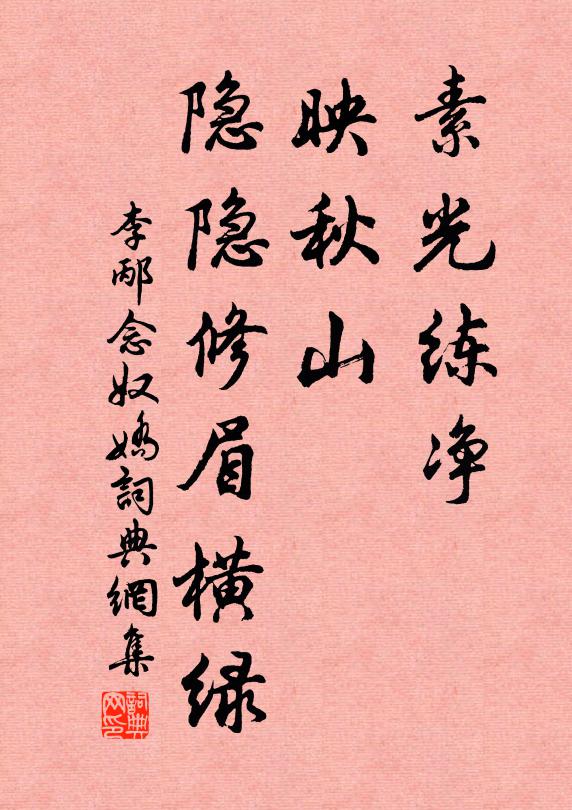 素光练净
映秋山
隐隐修眉横绿
李邴念奴娇詞典網集
詞典网印